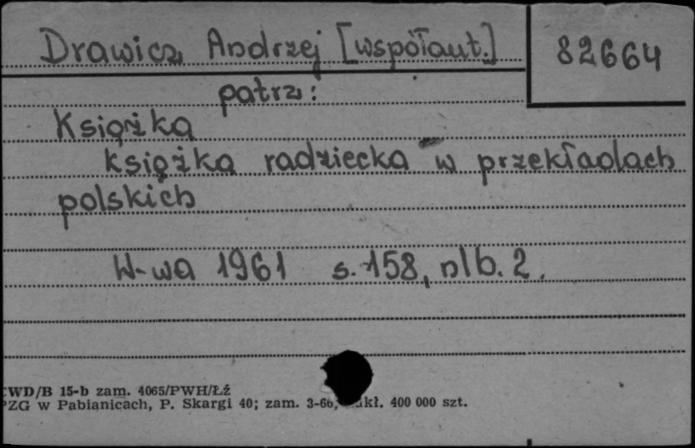 Drawicz Andrzej [współaut.]
82664
patrz:
Książka
książka radziecka w przekładach
polskich
W-wa 1961 s. 158, nlb. 2.
WD/B 15-b zam. 4065/PWH/Łź
PZG w Pabianicach, P. Skargi 40; zam. 3-66, nakł. 400 000 szt.